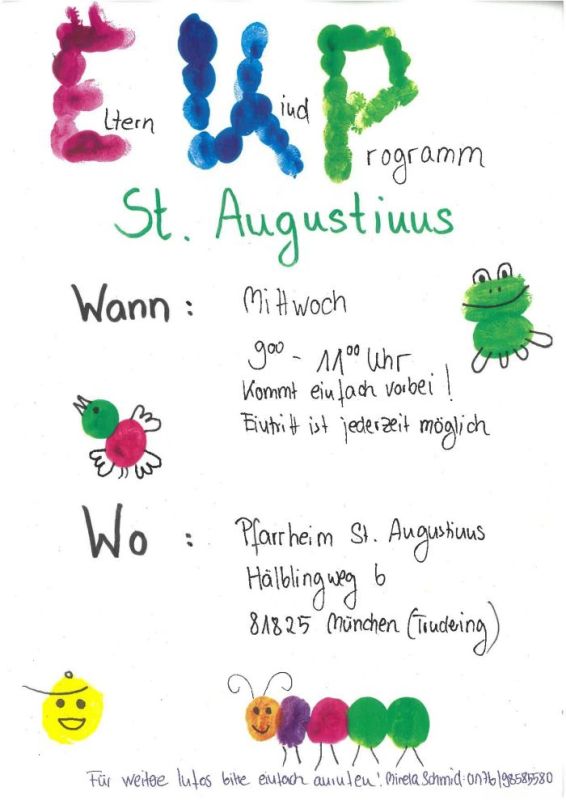 Eltern Kind Programm
St. Augustinus
Wann: Mittwoch
9⁰⁰ - 11⁰⁰ Uhr
Kommt einfach vorbei!
Eintritt ist jederzeit möglich
Wo: Pfarrheim St. Augustinus
Hälblingweg 6
81825 München (Trudering)
Für weitere Infos bitte einfach anrufen! Mirela Schmid: 0176/98585580